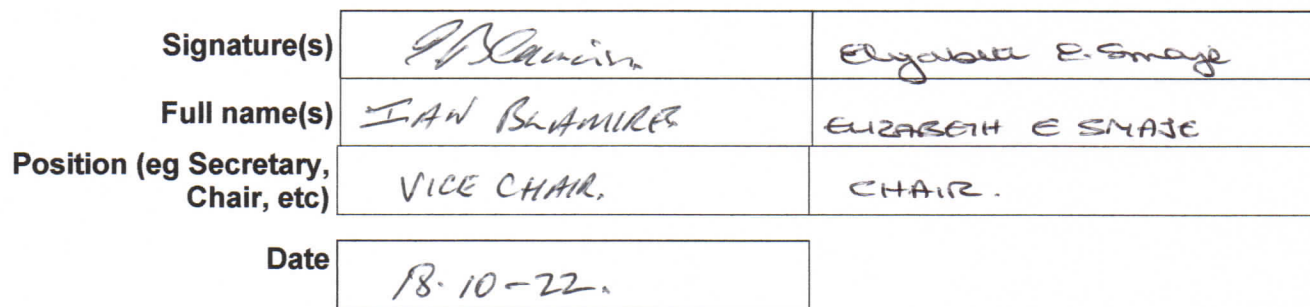 Signature(s) I Blamires Elizabeth E. Smaje
Full name(s) IAN BLAMIRES ELIZABETH E SMAJE
Position (eg Secretary,
Chair, etc) VICE CHAIR. CHAIR.
Date 18.10-22.